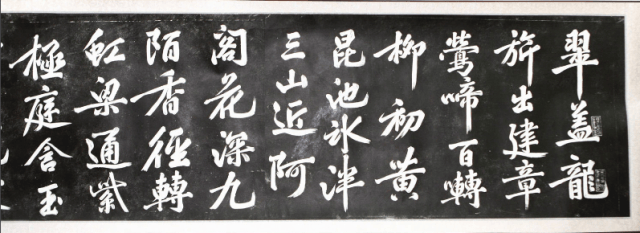 翠蓋龍
旂出建章
鶯啼百囀
柳初黃
昆池冰泮
三山近阿
閣花深九
陌香徑轉
虹梁通紫
極庭含玉